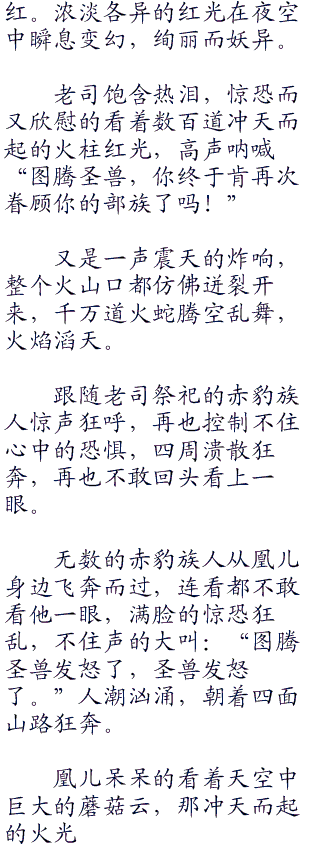 红。浓淡各异的红光在夜空
中瞬息变幻，绚丽而妖异。
老司饱含热泪，惊恐而
又欣慰的看着数百道冲天而
起的火柱红光，高声呐喊
“图腾圣兽，你终于肯再次
眷顾你的部族了吗！”
又是一声震天的炸响，
整个火山口都仿佛迸裂开
来，千万道火蛇腾空乱舞，
火焰滔天。
跟随老司祭祀的赤豹族
人惊声狂呼，再也控制不住
心中的恐惧，四周溃散狂
奔，再也不敢回头看上一
眼。
无数的赤豹族人从凰儿
身边飞奔而过，连看都不敢
看他一眼，满脸的惊恐狂
乱，不住声的大叫：“图腾
圣兽发怒了，圣兽发怒
了。”人潮汹涌，朝着四面
山路狂奔。
凰儿呆呆的看着天空中
巨大的蘑菇云，那冲天而起
的火光